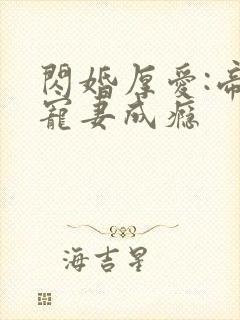 閃婚厚愛:帝
寵妻成癮
海吉星